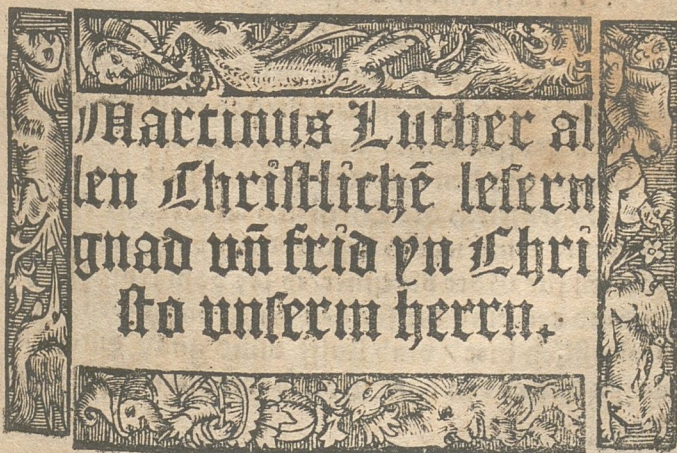 Martinus Luther al
len Christlichē lesern
gnad vn̄ frid yn Chri
sto vnserm herrn.